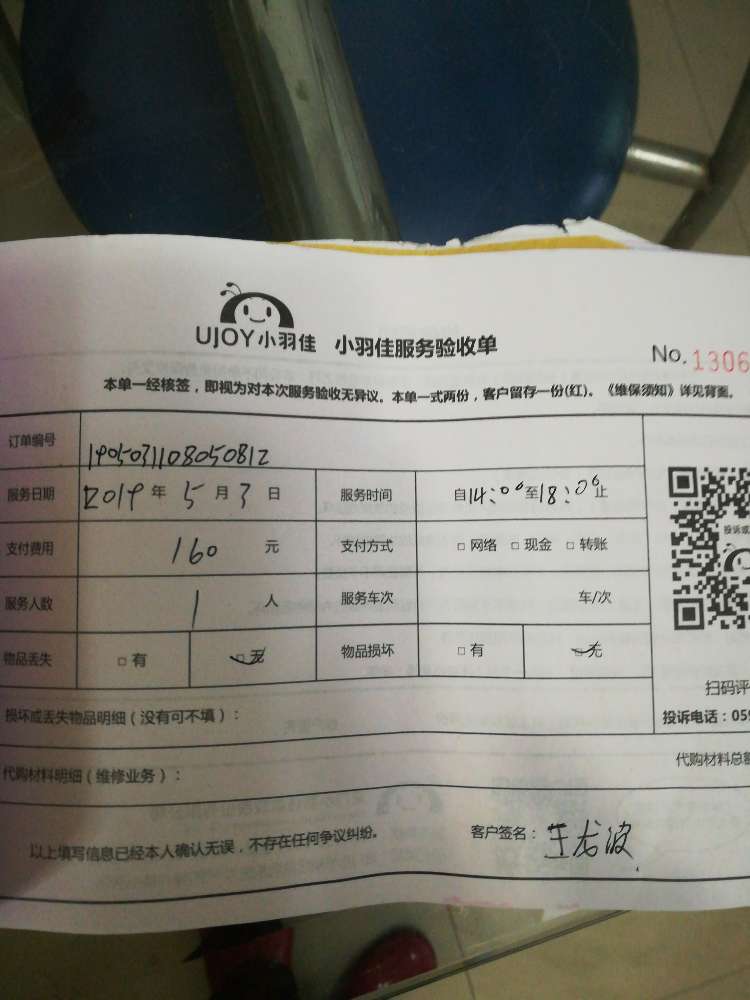 UJOY小羽佳 小羽佳服务验收单
No. 1306
本单一经核签，即视为对本次服务验收无异议。本单一式两份，客户留存一份(红)。《维保须知》详见背面。
订单编号 1905031108050812
服务日期 2019年5月3日 服务时间 自14:00至18:00止
支付费用 160元 支付方式 □网络 □现金 □转账
服务人数 1人 服务车次 车/次
物品丢失 □有 □无 物品损坏 □有 □无
投诉或
扫码评
投诉电话：059
损坏或丢失物品明细（没有可不填）：
代购材料明细（维修业务）： 代购材料总额
以上填写信息已经本人确认无误，不存在任何争议纠纷。 客户签名：王龙波